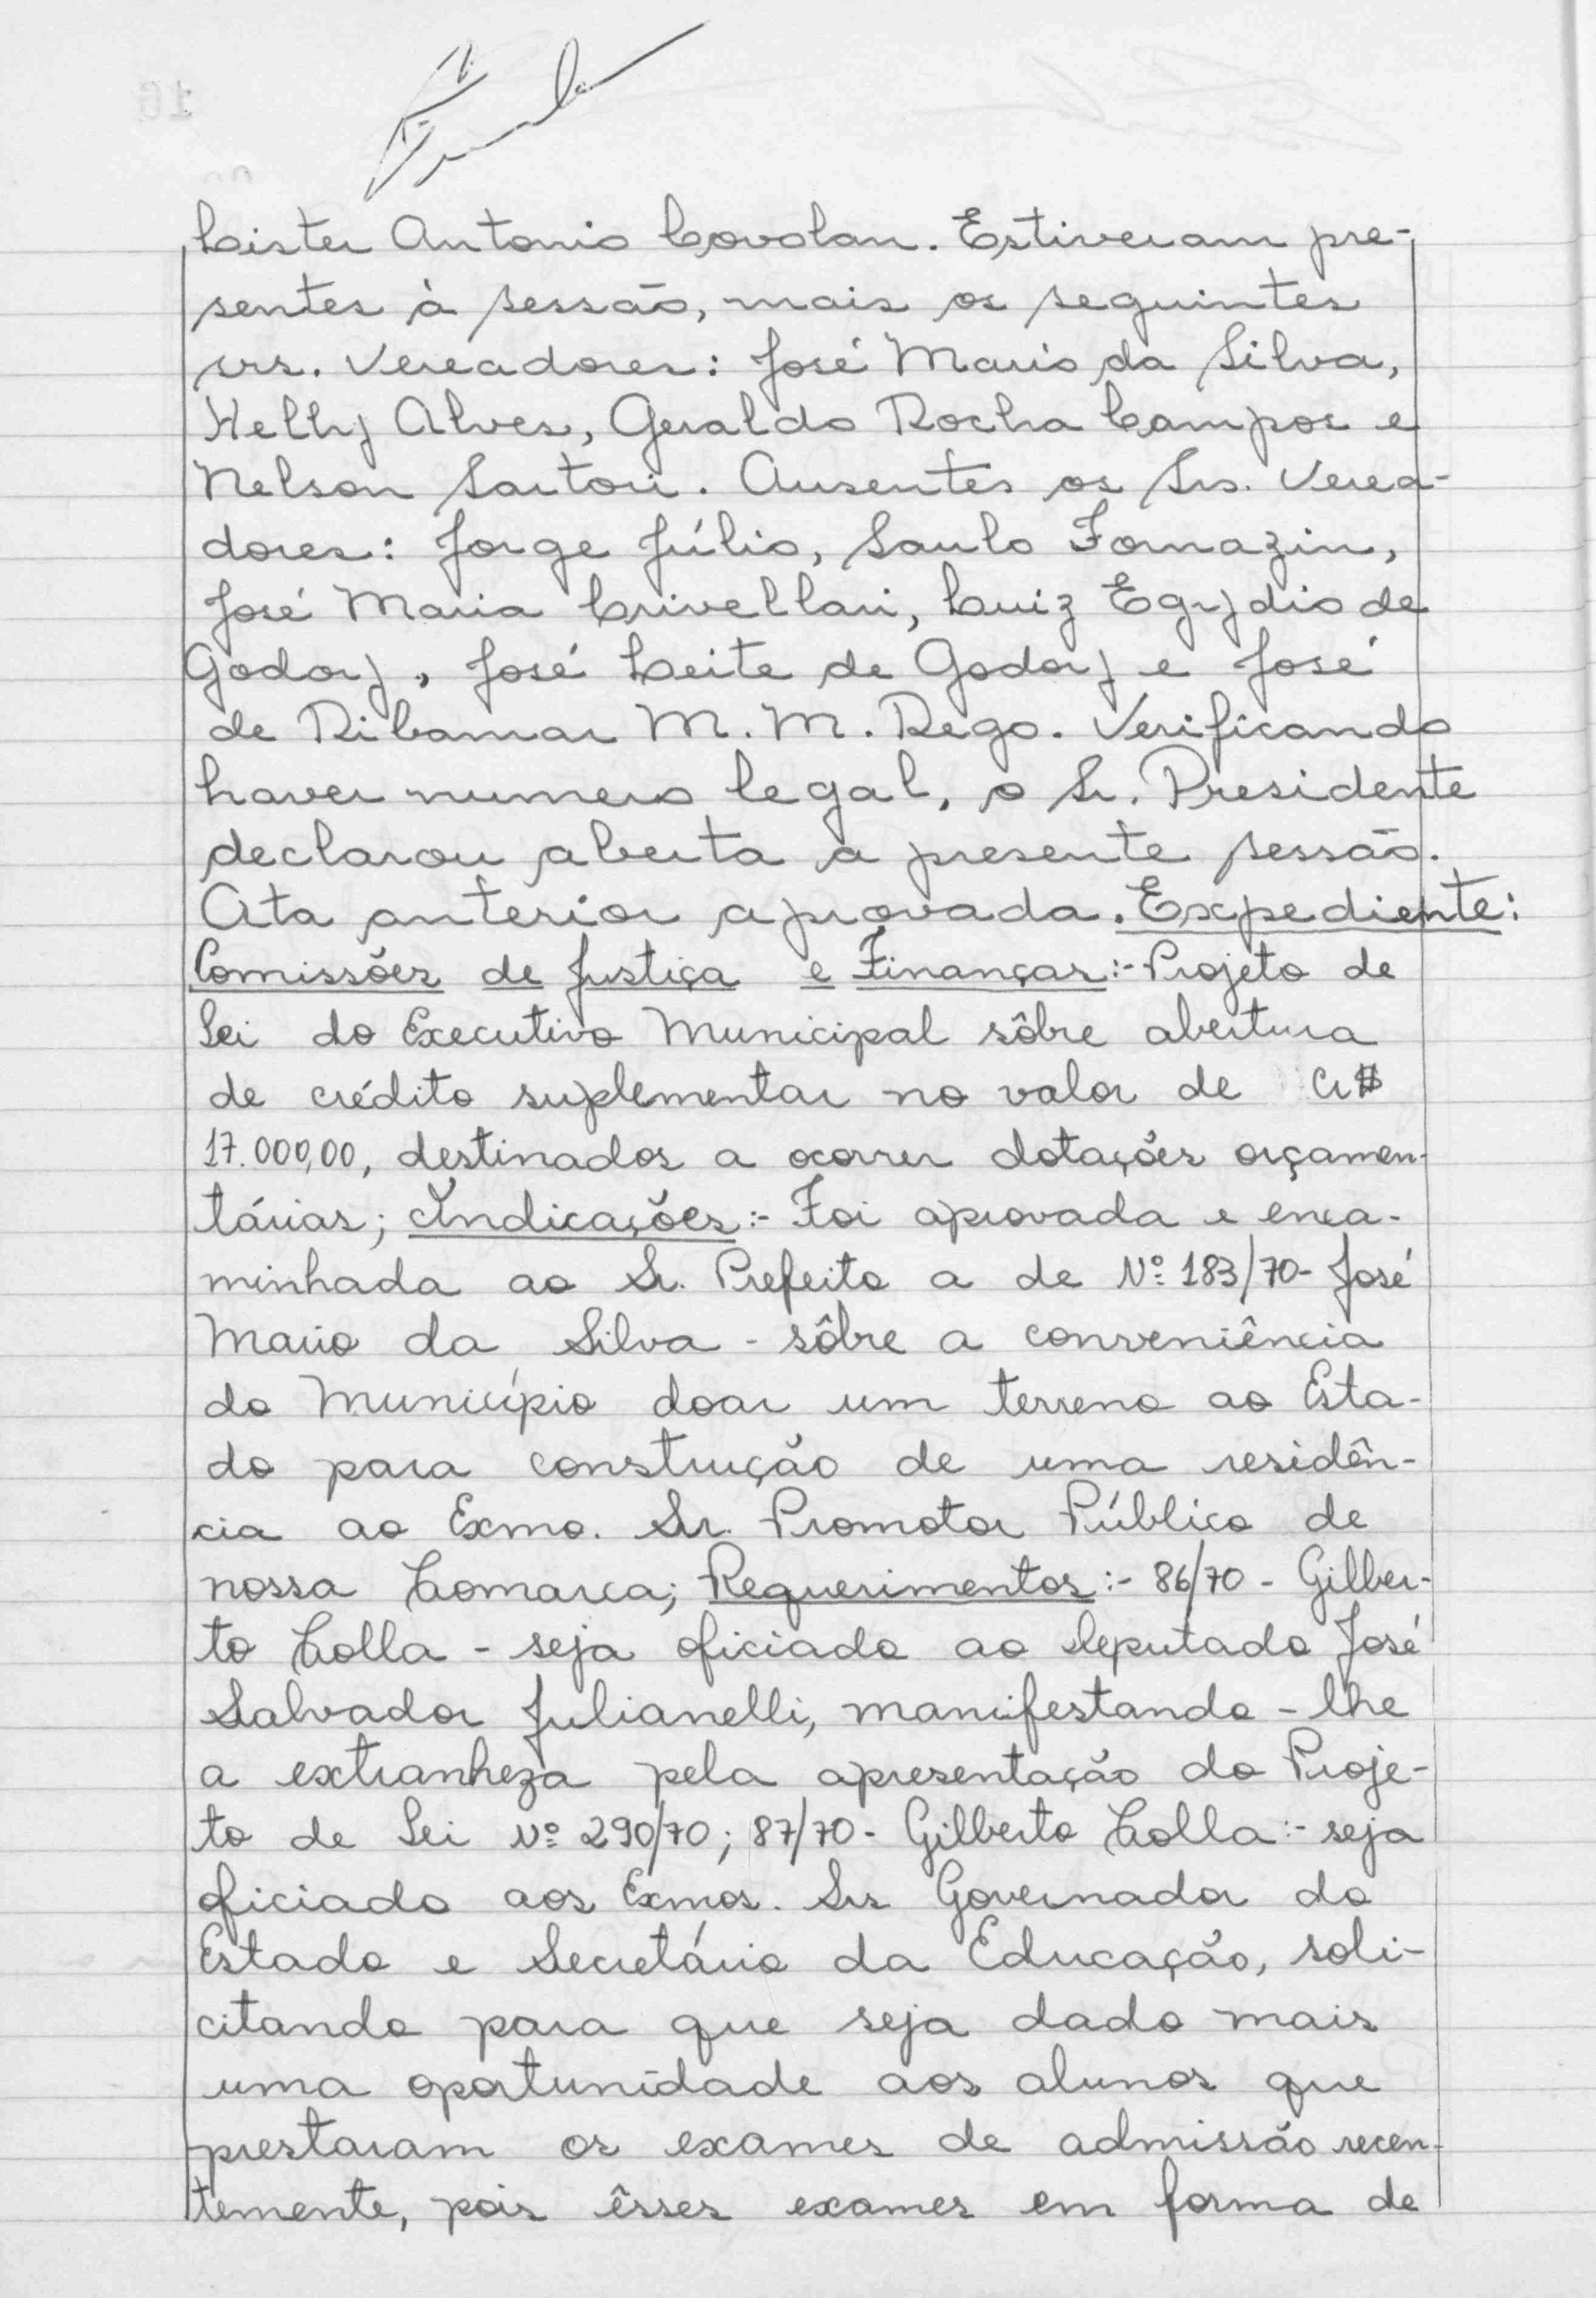 Lister Antonio Covolan. Estiveram pre-
sentes à sessão, mais os seguintes
srs. Vereadores: José Mario da Silva,
Helly Alves, Geraldo Rocha Campos e
Nelson Sartori. Ausentes os Srs. Verea-
dores: Jorge Júlio, Saulo Fornazin,
José Maria Crivellari, Luiz Egydio de
Godoy, José Leite de Godoy e José
de Ribamar M. M. Rego. Verificando
haver numero legal, o Sr. Presidente
declarou aberta a presente sessão.
Ata anterior aprovada. Expediente:
Comissões de Justiça e Finanças:- Projeto de
Lei do Executivo Municipal sôbre abertura
de crédito suplementar no valor de Cr$
17.000,00, destinados a ocorrer dotações orçamen-
tárias; Indicações:- Foi aprovada e enca-
minhada ao Sr. Prefeito a de Nº 183/70- José
Mario da Silva - sôbre a conveniência
do Município doar um terreno ao Esta-
do para construção de uma residên-
cia ao Exmo. Sr. Promotor Público de
nossa Comarca; Requerimentos:- 86/70 - Gilber-
to Colla - seja oficiado ao deputado José
Salvador Julianelli, manifestando-lhe
a extranheza pela apresentação do Proje-
to de Lei Nº 290/70; 87/70- Gilberto Colla:- seja
oficiado aos Exmos. Srs Governador do
Estado e Secretário da Educação, soli-
citando para que seja dado mais
uma oportunidade aos alunos que
prestaram os exames de admissão recen-
temente, pois êsses exames em forma de